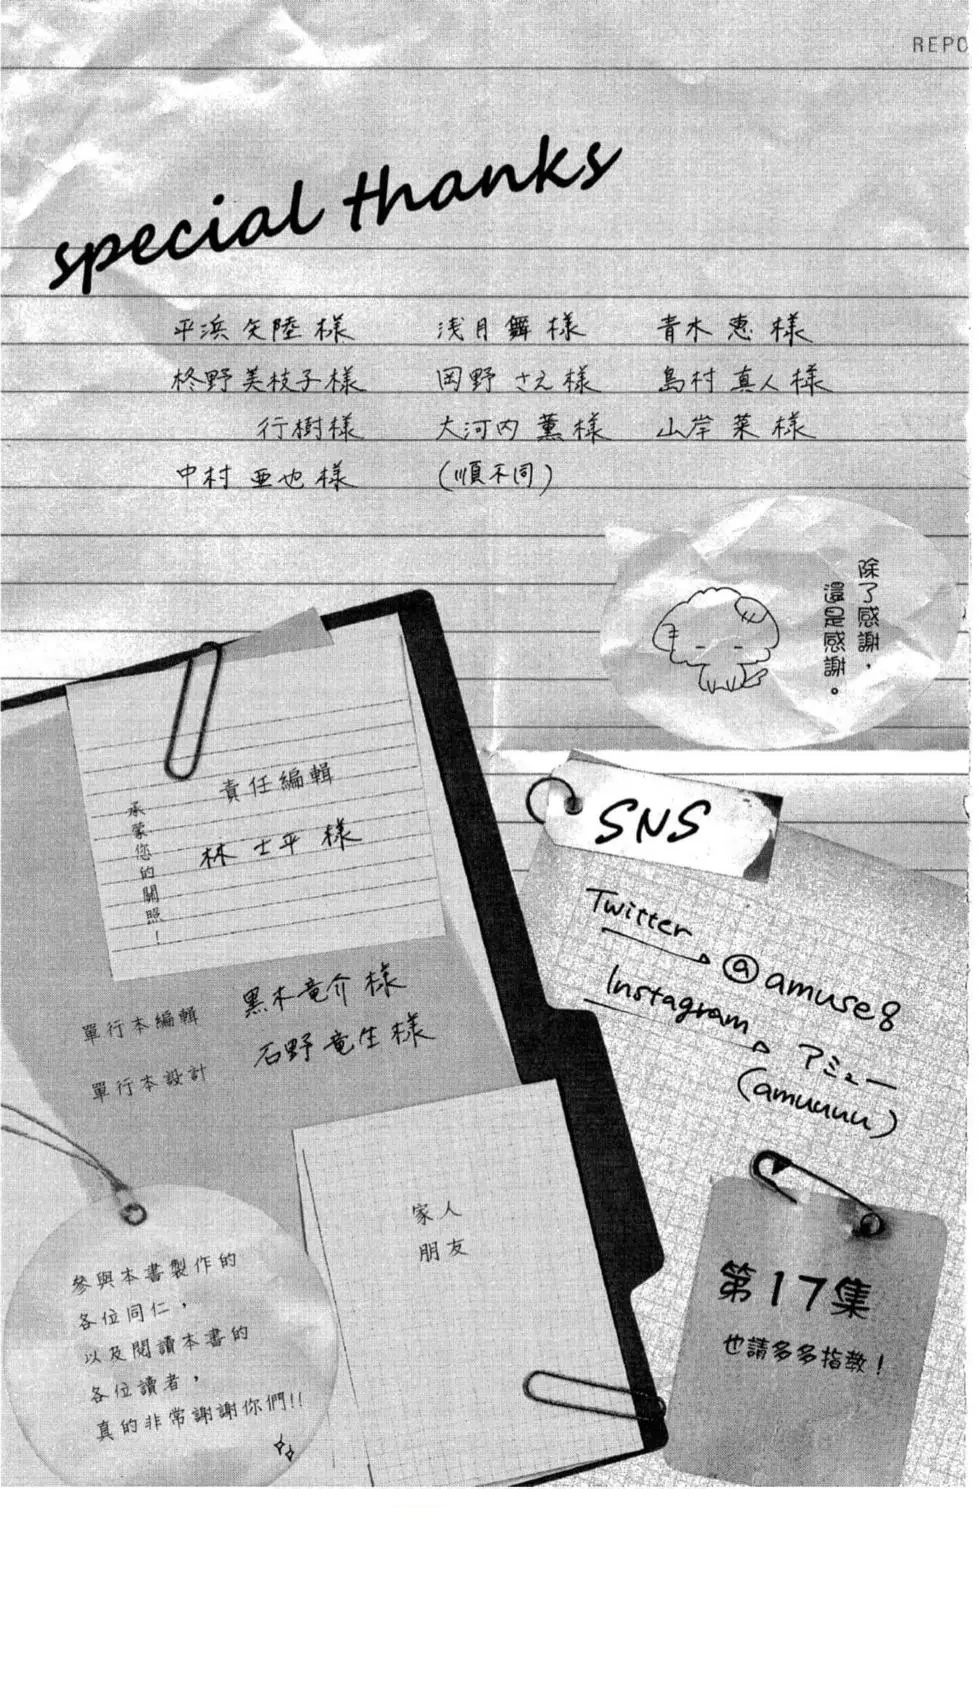 REPO
special thanks
平浜矢陸様 浅月舞様 青木恵様
柊野美枝子様 岡野さえ様 島村真人様
行樹様 大河内薫様 山岸菜様
中村亜也様 (順不同)
除了感謝，
還是感謝。
責任編輯
林士平様
承蒙您的關照！
單行本編輯 黒木竜介様
單行本設計 石野竜生様
SNS
Twitter
@amuse8
Instagram
アミュー
(amuuuu)
家人
朋友
參與本書製作的
各位同仁，
以及閱讀本書的
各位讀者，
真的非常謝謝你們!!
第17集
也請多多指教！